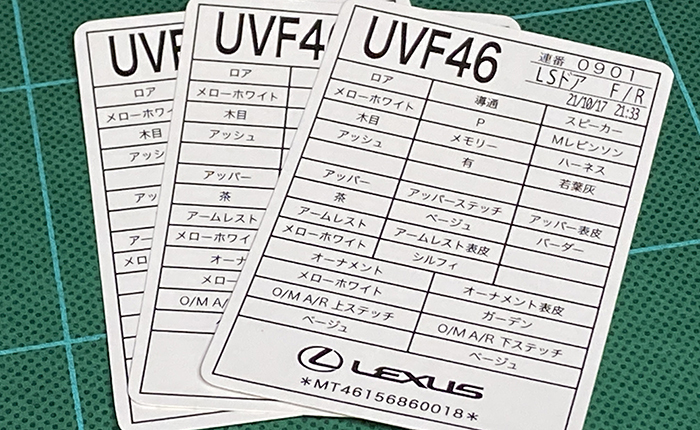 UVF
ロア
メローホワイト
木目
アッシ
アッ
アー
メロ
UVF4
ロア
メローホワイト
木目
アッシュ
アッパー
茶
アームレスト
メローホワイ
オーナ
メロー
O/M A/R
UVF46 連番 0901
LSドア F/R
21/10/17 21:33
ロア 導通 スピーカー
メローホワイト P Mレビンソン
木目 メモリー ハーネス
アッシュ 有 若葉灰
アッパー アッパーステッチ アッパー表皮
茶 ベージュ バーダー
アームレスト アームレスト表皮
メローホワイト シルフィ
オーナメント オーナメント表皮
メローホワイト ガーデン
O/M A/R 上ステッチ O/M A/R 下ステッチ
ベージュ ベージュ
LEXUS
*MT46156860018*